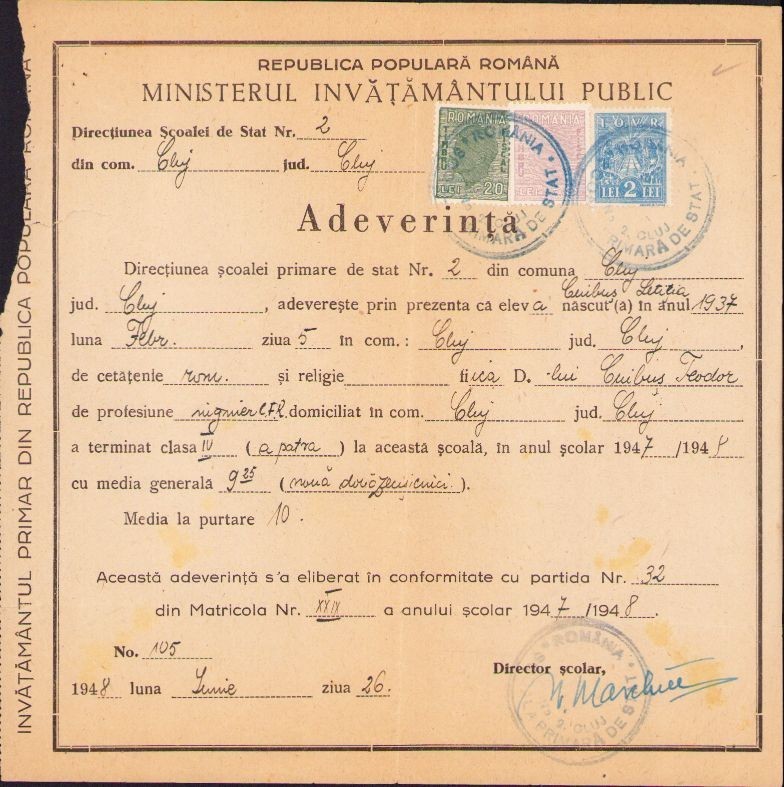 REPUBLICA POPULARĂ ROMÂNĂ
MINISTERUL INVĂȚĂMÂNTULUI PUBLIC
Direcțiunea Școalei de Stat Nr. 2
din com. Cluj jud. Cluj
ROMANIA
LEI 20
IOVR
LEI 2 LEI
Adeverință
Direcțiunea școalei primare de stat Nr. 2 din comuna Cluj
jud. Cluj, adeverește prin prezenta că eleva Cuibuș Letiția născut(ă) în anul 1937
luna Febr. ziua 5 în com.: Cluj jud. Cluj,
de cetățenie rom. și religie fiica D.-lui Cuibuș Teodor
de profesiune C.F.R. domiciliat în com. Cluj jud. Cluj
a terminat clasa IV (a patra) la această școală, în anul școlar 1947/1948
cu media generală 9 25 (nouă douăzecișicinci).
Media la purtare 10.
Această adeverință s'a eliberat în conformitate cu partida Nr. 32
din Matricola Nr. XXIX a anului școlar 1947/1948.
No. 105
1948 luna Iunie ziua 26.
Director școlar,
ROMÂNIA
2. CLUJ
PRIMARĂ DE STAT
INVĂȚĂMÂNTUL PRIMAR DIN REPUBLICA POPULARĂ ROMÂNĂ